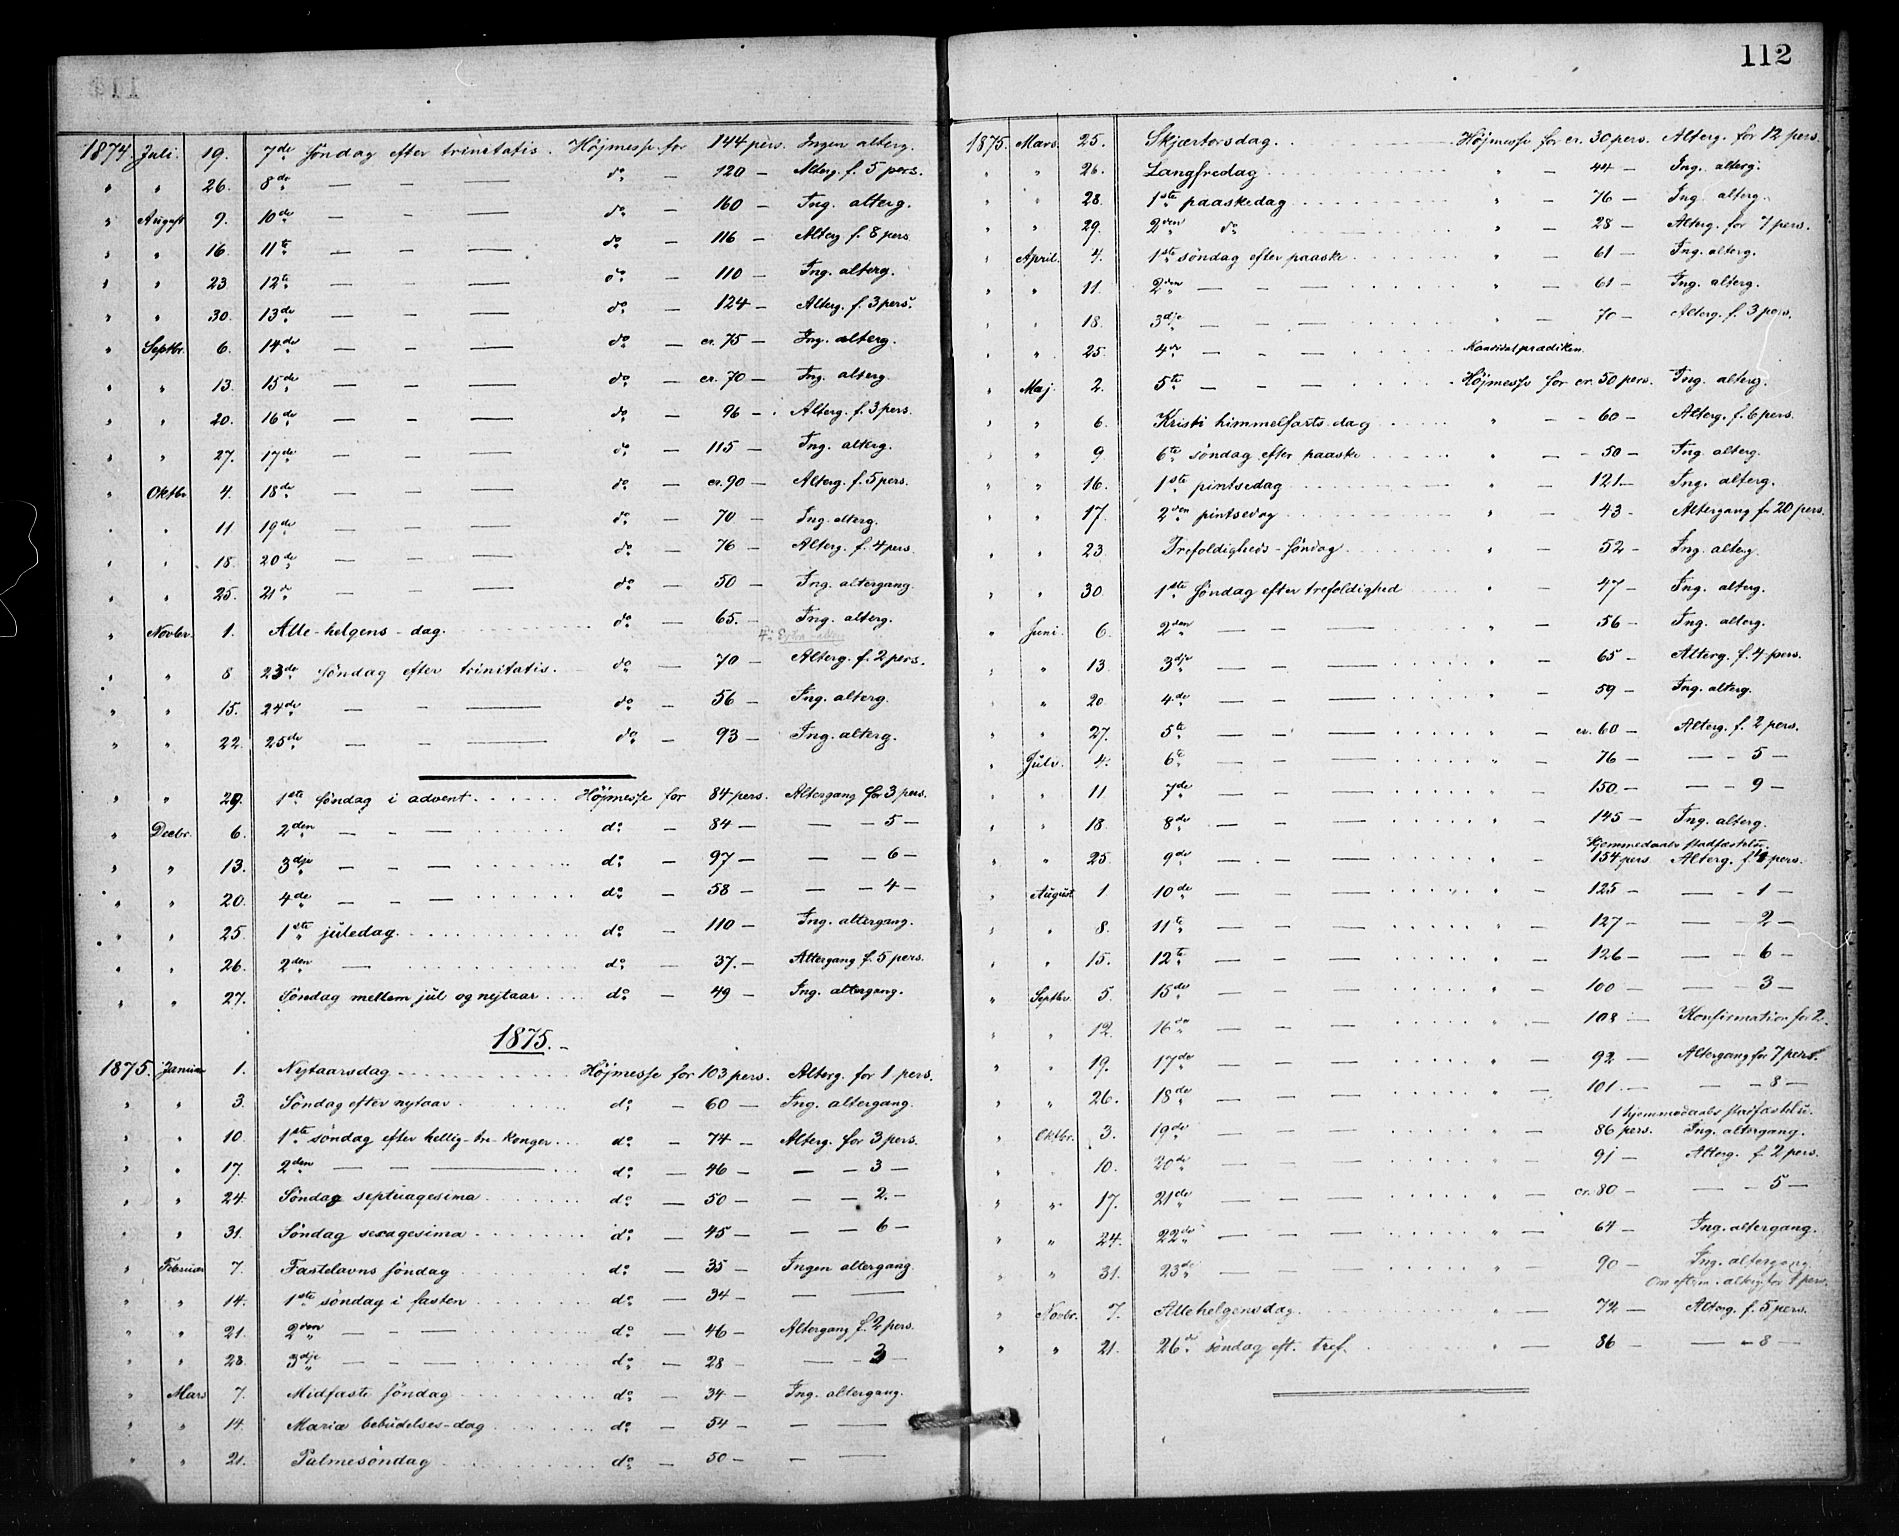 1874. Juli. 19. 7de søndag efter trinitatis. Højmesse for 144 pers. Ingen alterg.
" " 26. 8de — — — do — 120 — Alterg. f. 5 pers.
" August 9. 10de — — — do — 160 — Ing. alterg.
" " 16. 11te — — — do — 116 — Alterg f. 8 pers.
" " 23 12te — — — do — 110 — Ing. alterg.
" " 30. 13de — — — do — 124 — Alterg. f. 3 pers.
" Septbr. 6. 14de — — — do — cr. 75 — Ing. alterg.
" " 13. 15de — — — do — cr. 70 — Ing. alterg.
" " 20. 16de — — — do — 96 — Alterg. f. 3 pers.
" " 27. 17de — — — do — 115 — Ing. alterg.
" Oktbr 4. 18de — — — do — cr. 90 — Alterg. f. 5 pers.
" " 11 19de — — — do — 70 — Ing. alterg.
" " 18. 20de — — — do — 76 — Alterg. f. 4 pers.
" " 25. 21de — — — do — 50 — Ing. altergang.
" Novbr. 1. Alle-helgens-dag. do — 65. — Ing. alterg.
" " 8 23de søndag efter trinitatis. do — 70 — Alterg. f. 2 pers.
" " 15. 24de — — — do — 56 — Ing. alterg.
" " 22. 25de — — — do — 93 — Ing. alterg.
" " 29. 1ste søndag i advent. Højmesse for 84 pers. Altergang for 3 pers.
" Decbr. 6. 2den — — — do — 84 — — — 5 —
" " 13. 3dje — — — do — 97 — — — 6 —
" " 20. 4de — — — do — 58 — — — 4 —
" " 25. 1ste juledag. do — 110 — Ing. altergang.
" " 26. 2den — do — 37. — Altergang f. 5 pers.
" " 27. Søndag mellem jul og nytaar. do — 49 — Ing. altergang.
1875. —
1875. Januar 1. Nytaarsdag. Højmesse for 103 pers. Alterg. for 1 pers.
" " 3. Søndag efter nytaar. do — 60 — Ing. altergang.
" " 10. 1ste søndag efter hellig-tre-konger. do — 74 — Alterg. for 3 pers.
" " 17. 2den — — — do — 46 — — — 3 —
" " 24. Søndag septuagesima do — 50 — — — 2. —
" " 31. Søndag sexagesima do — 45 — — — 6 —
" Februar 7. Fastelavns søndag do — 35 — Ingen altergang.
" " 14. 1ste søndag i fasten do — 34 — — —
" " 21. 2den — — — do — 46 — Altergang f. 2 pers.
" " 28. 3dje — — — do — 28 — — 3 —
" Mars 7. Midfaste søndag do — 34 — Ing. altergang.
" " 14. Mariæ bebudelses-dag do — 54 — — —
" " 21. Palmesøndag do — 50 — — —
112
1875. Mars. 25. Skjærtorsdag. Højmesse for cr. 30 pers. Alterg. for 12 pers.
" " 26. Langfredag " — 44 — Ing. alterg.
" " 28. 1ste paaskedag " — 76 — Ing. alterg.
" " 29. 2den do " — 28 — Alterg. for 7 pers.
" April. 4. 1ste søndag efter paaske " — 61 — Ing. alterg.
" " 11. 2den — — — " — 61 — Ing. alterg.
" " 18. 3dje — — — " — 70 — Alterg. f. 3 pers.
" " 25. 4de — — — Kandidatprædiken.
" Maj. 2. 5te — — — Højmesse for cr. 50 pers. Ing. alterg.
" " 6. Kristi himmelfarts dag " — 60 — Alterg. f. 6 pers.
" " 9 6te søndag efter paaske " — 50 — Ing. alterg.
" " 16. 1ste pintsedag " — 121 — Ing. alterg.
" " 17. 2den pintsedag " — 43 — Altergang for 20 pers.
" " 23. Trefoldigheds-søndag " — 52 — Ing. alterg.
" " 30. 1ste søndag efter trefoldighed " — 47 — Ing. alterg.
" Juni. 6. 2den — — — " — 56 — Ing. alterg.
" " 13. 3dje — — — " — 65 — Alterg. f. 4 pers.
" " 20. 4de — — — " — 59 — Ing. alterg.
" " 27. 5te — — — " — cr. 60 — Alterg. f. 2 pers.
" Juli. 4. 6te — — — " — 76 — — — 5 —
" " 11. 7de — — — " — 150. — — — 9 —
" " 18. 8de — — — " — 145 — Ing. alterg.
Hjemmedaabs stadfæstelse.
" " 25. 9de — — — " — 154 pers Alterg. f. 4 pers.
" August 1. 10de — — — " — 125 — — — 1 —
" " 8. 11te — — — " — 127 — — — 2 —
" " 15. 12te — — — " — 126 — — — 6 —
" Septbr. 5. 15de — — — " — 100 — — — 3 —
" " 12. 16de — — — " — 108 — Konfirmation for 2.
" " 19. 17de — — — " — 92 — Altergang for 7 pers.
" " 26. 18de — — — " — 101. — — — 8 —
1 hjemmedaabs stadfæstelse.
" Oktbr. 3. 19de — — — " — 86 pers. Ing. altergang.
" " 10. 20de — — — " — 91 — Alterg. f. 2 pers.
" " 17. 21de — — — " — cr. 80 — — — 5 —
" " 24. 22de — — — " — 64 — Ing. altergang.
" " 31. 23de — — — " — 90 — Ing. altergang.
Om efterm. alterg. for 1 pers.
" Novbr. 7. Allehelgensdag. " — 72 — Alterg. f. 5 pers.
" " 21. 26de søndag eft. tref. " — 86 — — — 8 —